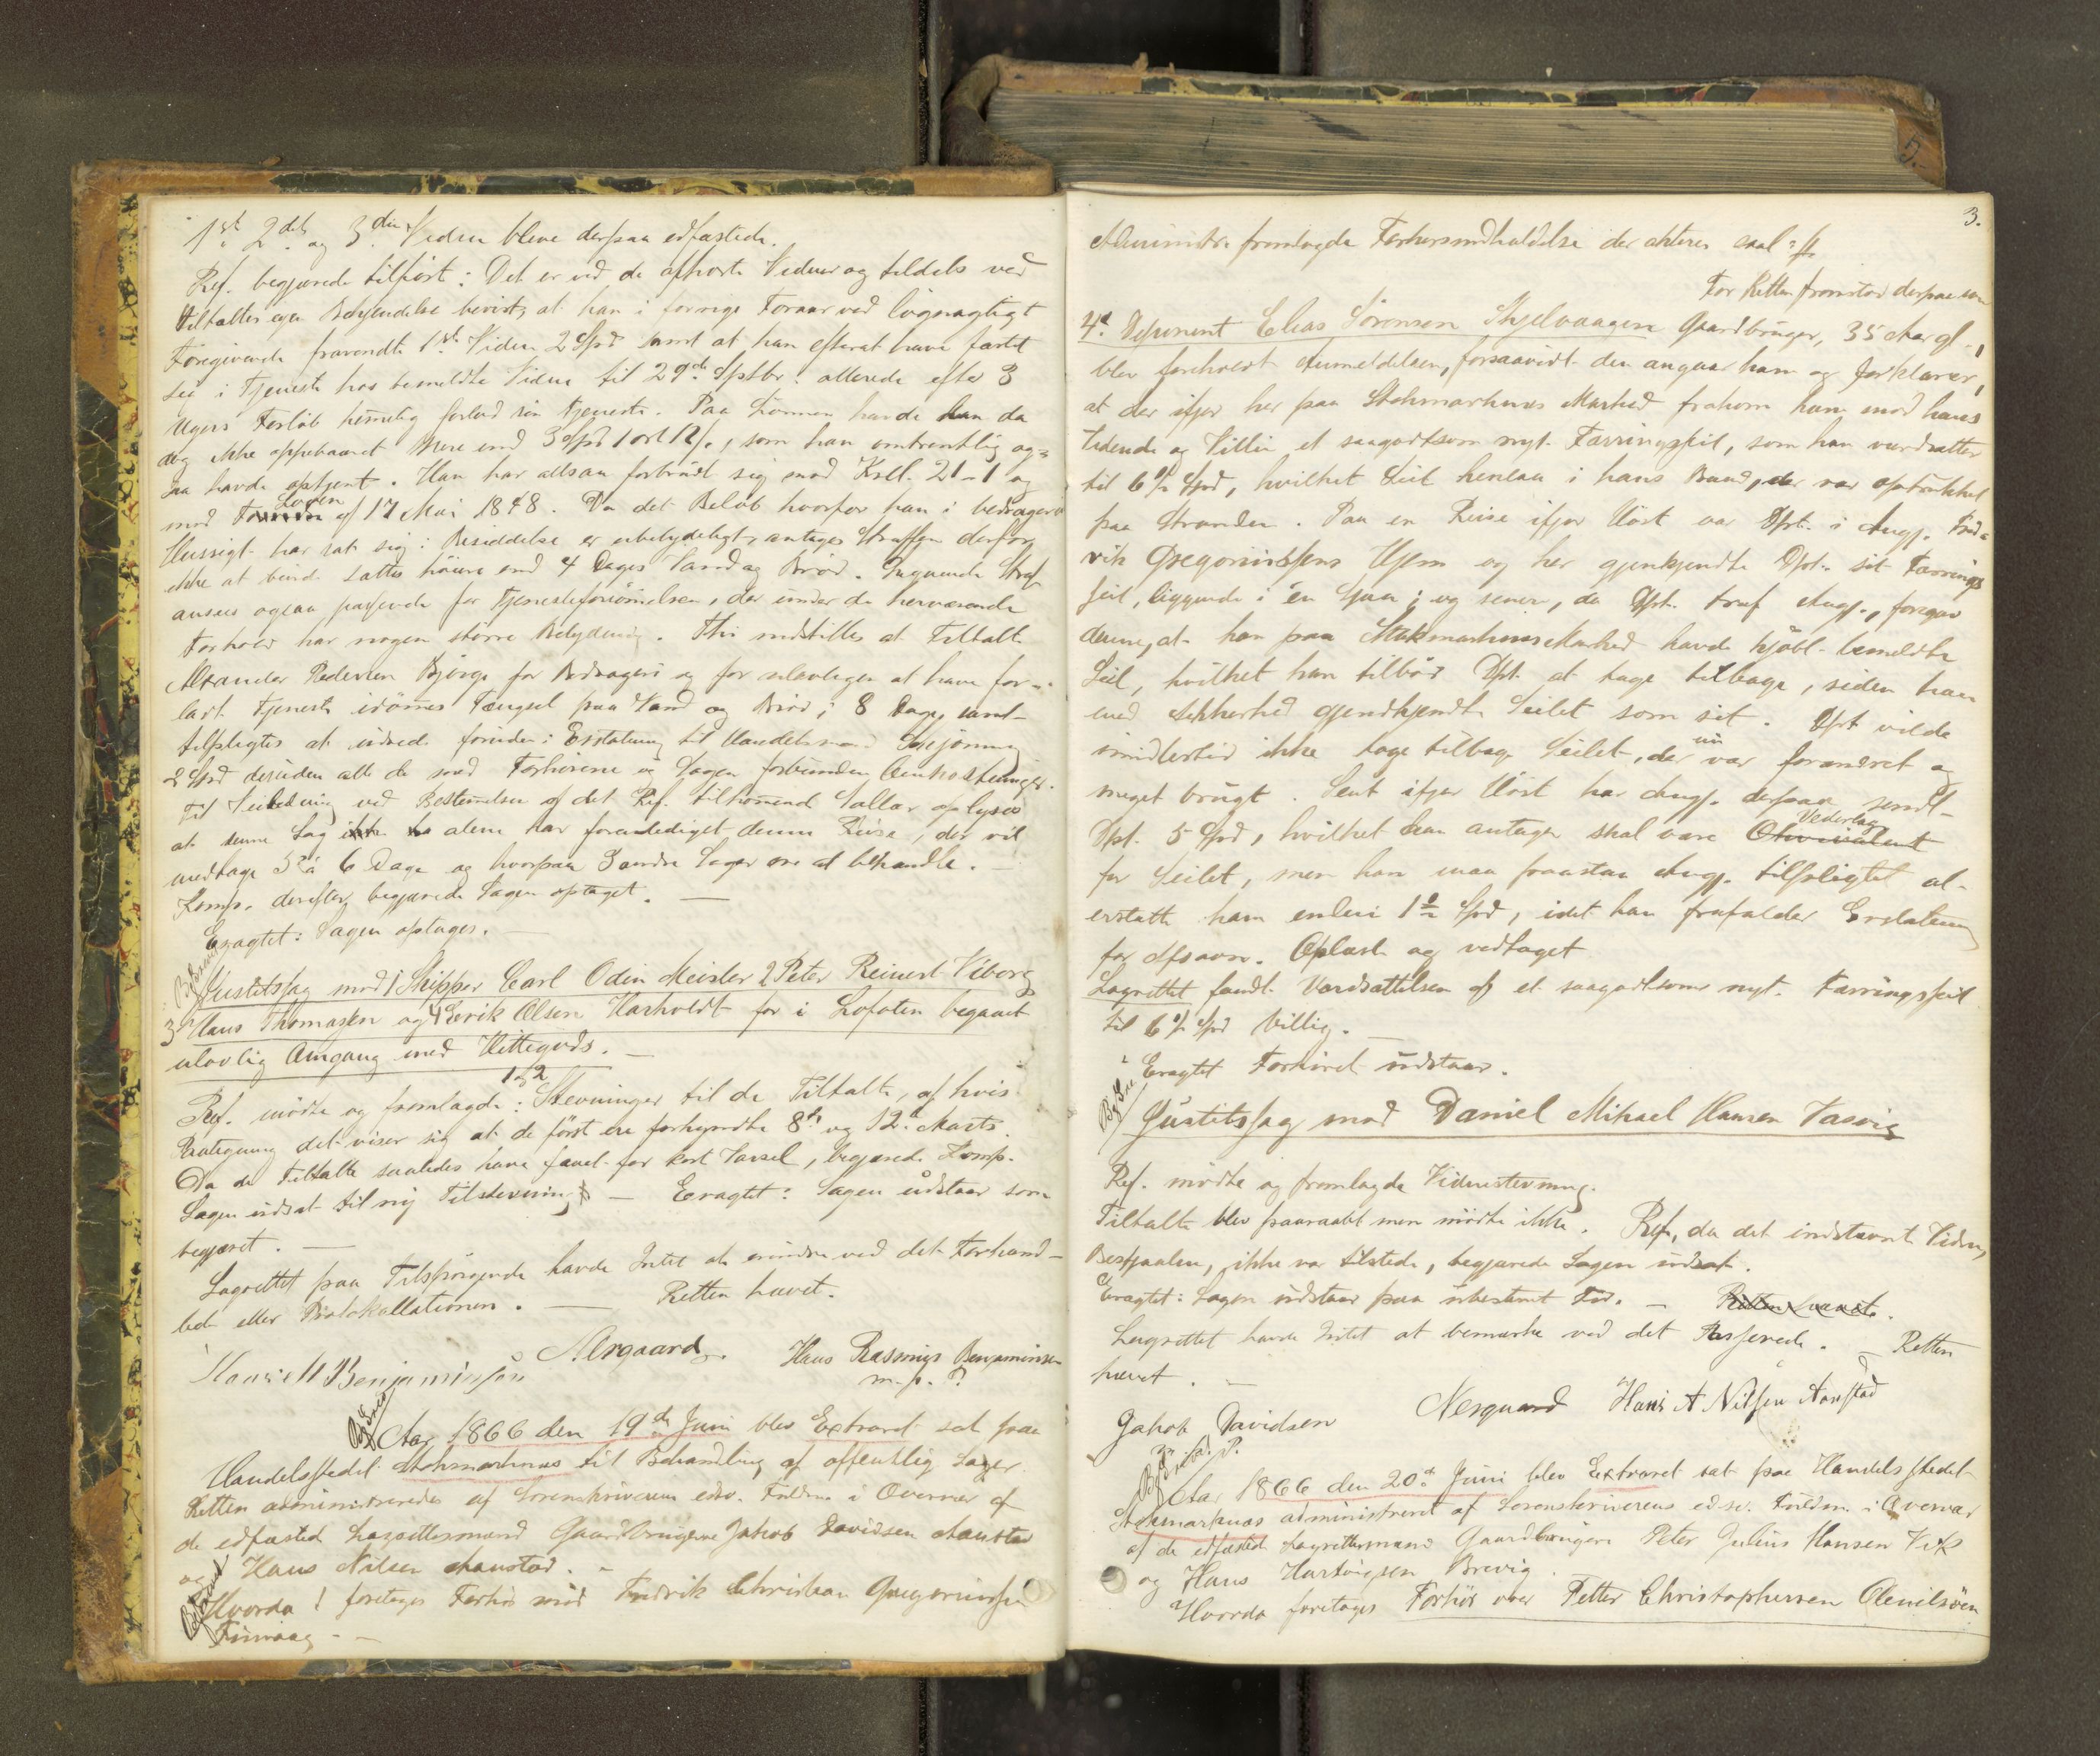 1st 2det og 3die Vidne bleve derpaa edfæstede.
Ref. begjærede tilført: Det er ved de afhørte Vidner og tildels ved
Tiltaltes egen Bekjendelse bevist, at han i forrige Foraar ved løgnagtigt
Foregivende fravendte 1ste Vidne 2 Spd samt at han efterat have fæstet
sig i Tjeneste hos bemeldte Vidne til 29de Septbr: allerede efter 3
Ugers Forløb hemelig forlod sin Tjeneste. Paa Lønnen havde han da
dog ikke oppebaaret mere end 3 Spd 1 ort 12 s., som han omtrentlig og-
saa havde optjent. Han har altsaa forbrudt sig mod Krll. 21-1 og
mod Loven af 17 Mai 1848. Da det Beløb hvorfor han i bedragerisk
Hensigt har sat sig i Besiddelse er ubetydeligt, antages Straffen derfor
ikke at burde sættes høiere end 4 Dages Vand og Brød. Lignende Straf
ansees ogsaa passende for Tjenesteforsømmelsen, der under de herværende
Forhold har nogen større Betydning. Thi indstilles at Tiltalte
Alexander Pedersen Bjørge for Bedrageri og for ulovligen at have for-
ladt Tjeneste idømmes Fængsel paa Vand og Brød i 8 Dage, samt
tilpligtes at udrede foruden i Erstatning til Handelsmand
2 Spd desuden alle de med Forhørene og Sagen forbundne Omkostninger.
Til Veiledning ved Bestemelsen af det Ref. tilkommende Sallær oplyses
at denne Sag alene har foranlediget denne Reise, der vil
medtage 5 à 6 Dage og hvorpaa 3 andre Sager ere at behandle. —
Komp. derefter begjærede Sagen optaget. —
Eragtet: Sagen optages. —
Justitssag mod 1 Skipper Carl Odin Meisler 2 Peter Reinert Viborg
3 Hans Thomassen og 4 Eerik Olsen Harholdt for i Lofoten begaaet
ulovlig Omgang med Hittegods. —
1 & 2
Ref. mødte og fremlagde: Stevninger til de Tiltalte, af hvis
Paategning det viser sig at de først ere forkyndte 8de og 12te Marts.
Da de Tiltalte saaledes have faaet for kort Varsel, begjærede Komp.
Sagen udsat til ny Tilstevning — Eragtet: Sagen udstaar som
begjæret. —
Lagrettet paa Tilspørgende havde Intet at erindre ved det Forhand-
lede eller Protokollationen. — Retten hævet.
Nergaard. Hans Rasmus Benjaminsen
m. p. P.
Hans H Benjaminsen
Aar 1866 den 19de Juni blev Extraret sat paa
Handelsstedet Stokmarknæs til Behandling af offentlig Sager
Retten administreredes af Sorenskriverens edsv. Fuldm. i Overvær af
de edfæsted Lagrettesmænd Gaardbrugerne Jakob Davidsen Aanstad
og Hans Nilsen Aanstad. —
Hvorda ! foretoges Forhør mod Fredrik Christian Gregoriussen
Finvaag —
3.
Administr. fremlagde Forhørsindkaldelse der akteres saal. :/:
For Retten fremstod derpaa som
4de Deponent Elias Sørensen Skjelvaagen Gaardbruger, 35 Aar gl.,
blev foreholdt Anmeldelsen, forsaavidt den angaar ham og forklarer,
at der ifjor her paa Stokmarknæs Marked frakom ham mod hans
Vidende og Villie et saagodtsom nyt Færringseil, som han værdsætter
til 6 ½ Spd, hvilket Seil henlaa i hans Baad, der var optrukket
paa Stranden. Paa en Reise ifjor Høst var Dpt. i Angj. Fred-
rik Gregoriussens Hjem og her gjenkjendte Dpt. sit Færrings
seil, liggende i en Sjaa; og senere, da Dpt. traf Angj., foregav
denne, at han paa Stokmarknæs Marked havde kjøbt bemeldte
Seil, hvilket han tilbød Dpt. at tage tilbage, siden han
med Sikkerhed gjendkjendte Seilet som sit. Dpt vilde
imidlertid ikke tage tilbage Seilet, der nu var forandret og
meget brugt. Sent ifjor Høst har Angj. derpaa sendt
Dpt. 5 Spd, hvilket han antager skal være Vederlag
for Seilet, men han maa paastaa Angj. tilpligtet at
erstatte ham endnu 1 ½ Spd, idet han frafalder Erstatning
for Afsavn. Oplæst og vedtaget
Lagrettet fandt Værdsættelsen af et saagodtsom nyt Færringseil
til 6 ½ Spd billig. —
Eragtet Forhøret udstaar.
Justitssag mod Daniel Mikael Hansen Vasvig
Ref. mødte og fremlagde Vidnestevning.
Tiltalte blev paaraabt men mødte ikke. Ref., da det indstævnte Vidne,
, ikke var tilstede, begjærede Sagen udsat.
Eragtet: Sagen udstaar paa ubestemt Tid. — Retten hævet.
Lagrettet havde Intet at bemærke ved det Passerede. — Retten
hævet. —
Nergaard Hans A Nilsen Aanstad
Jakob Davidsen
m. p. P.
Aar 1866 den 20de Juni blev Extraret sat paa Handelsstedet
Stokmarknæs administreret af Sorenskriverens edsv. Fuldm. i Overvær
af de edfæsted Lagrettesmænd Gaardbrugere Peter Julius Hansen Vik
og Hans Hartvigsen Brevig.
Hvorda foretoges Forhør over Petter Christophersen Olenilsøen